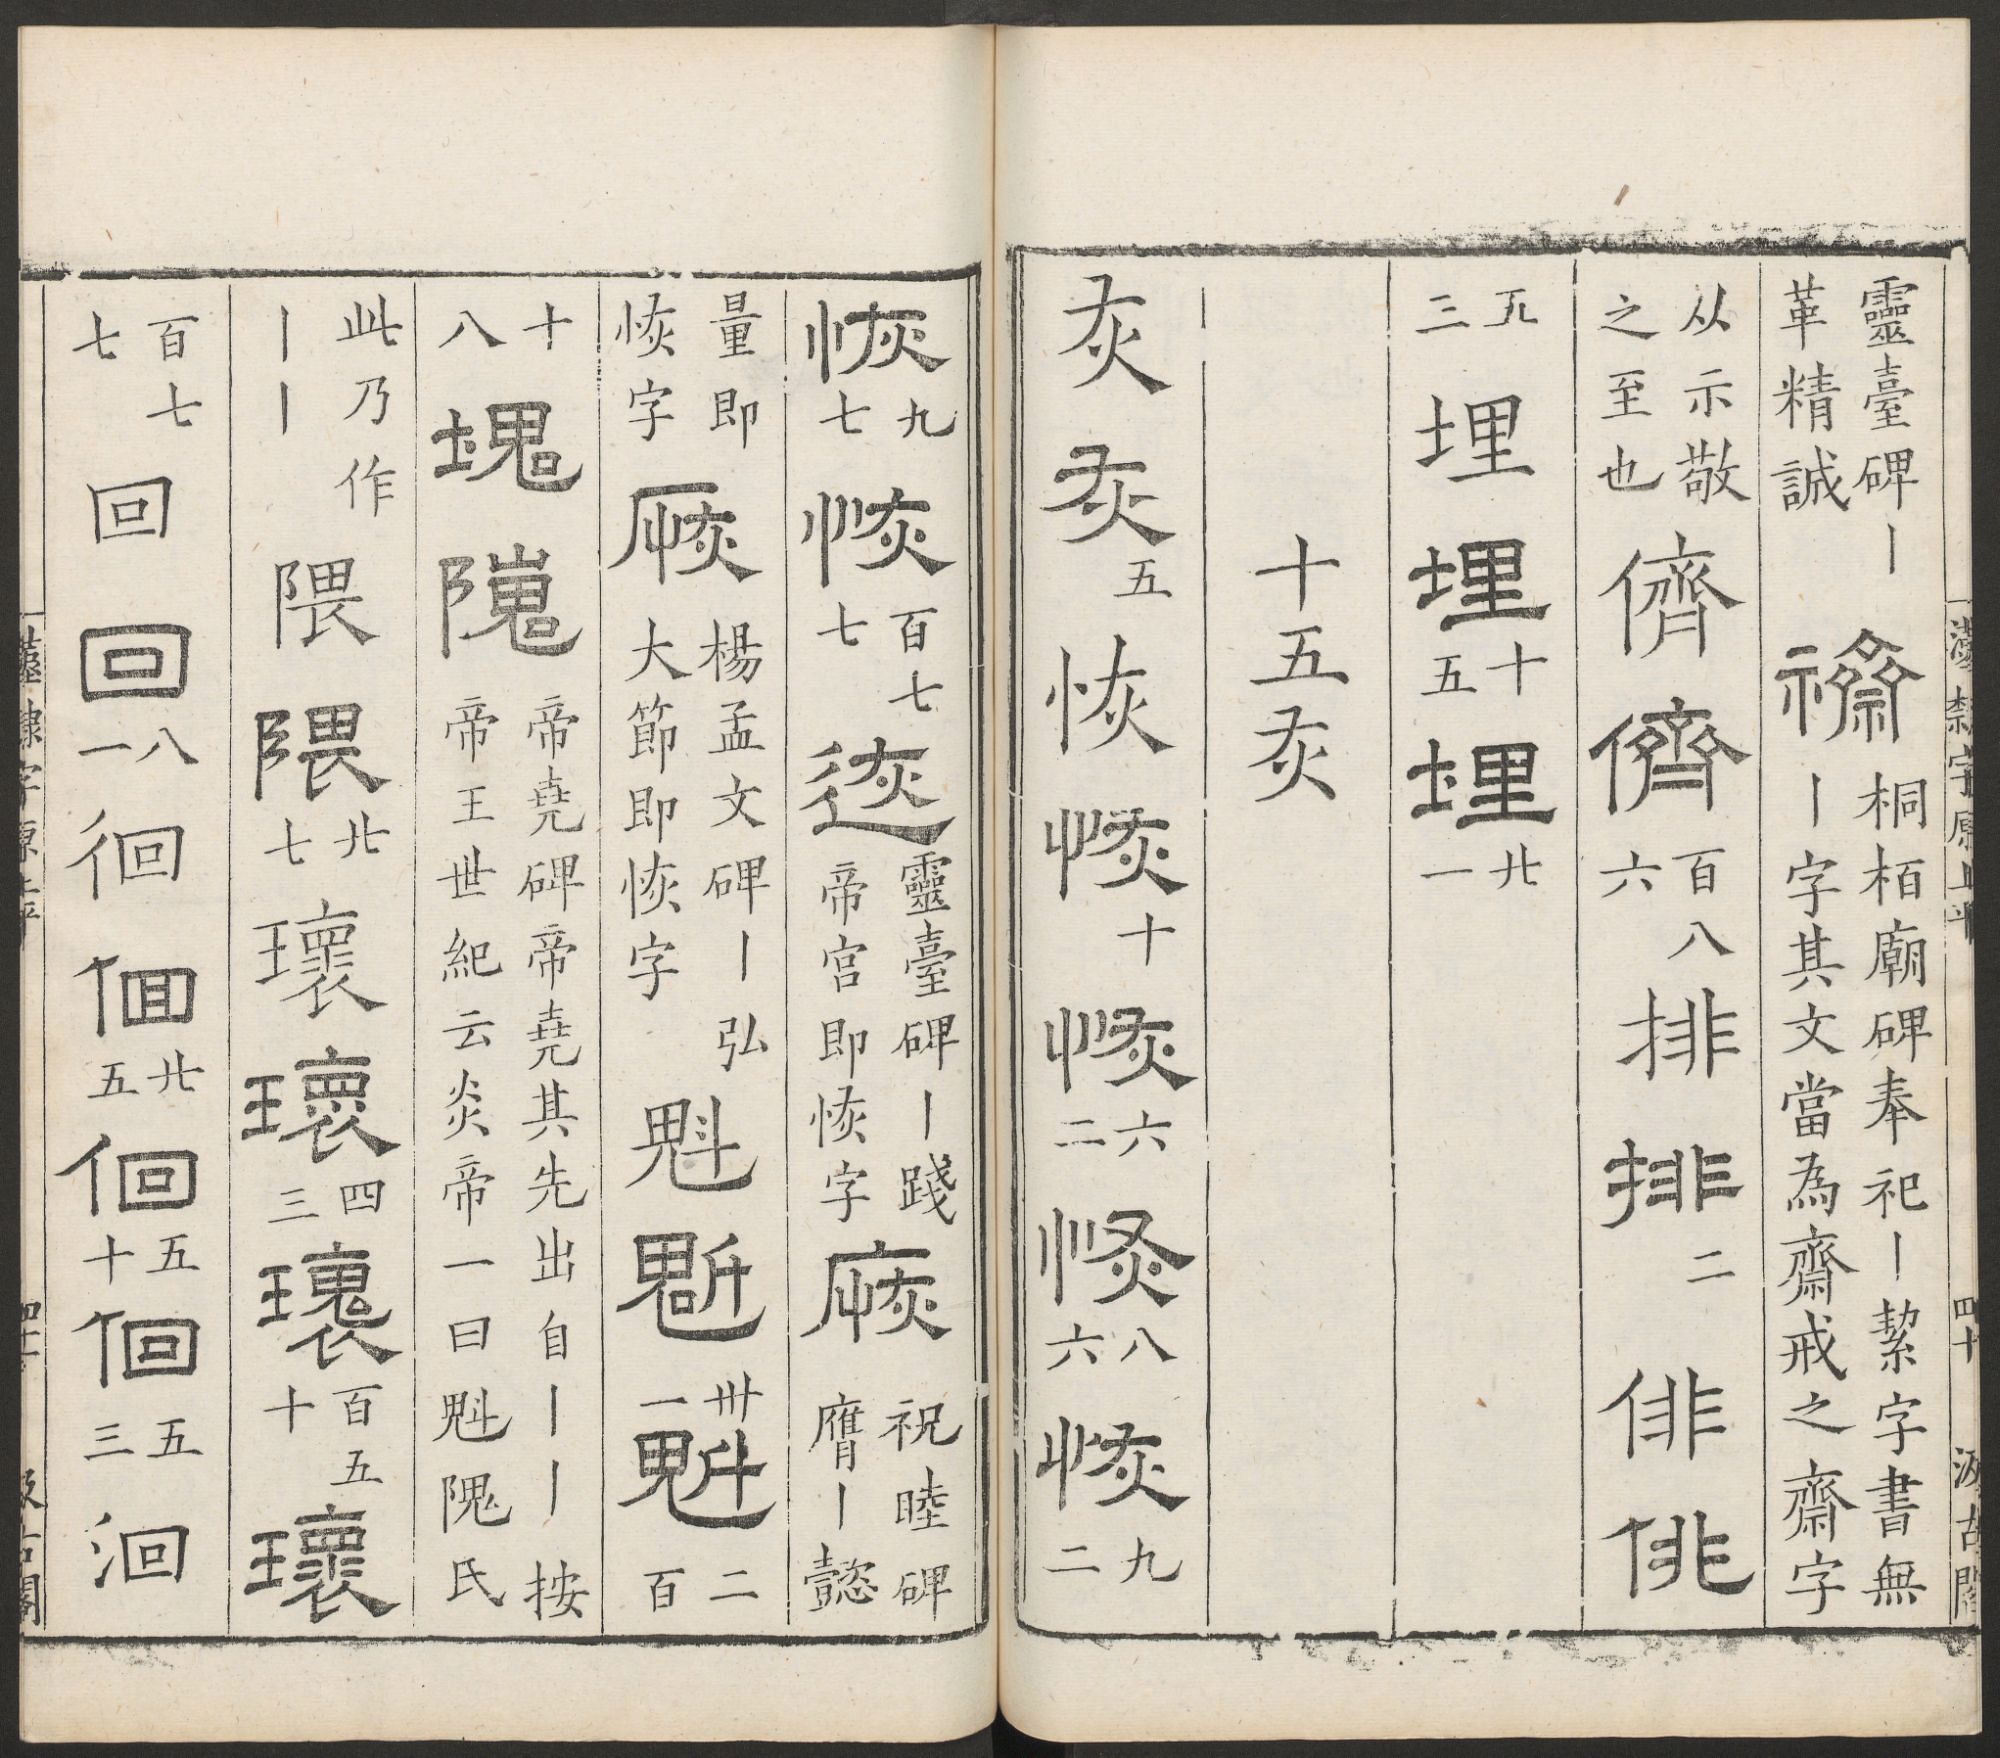 漢隸字原上平 四十 汲古閣
靈臺碑丨
革精誠
桐栢廟碑奉祀丨絜字書無
丨字其文當為齋戒之齋字
从示敬
之至也
儕儕百八六排排二俳俳
三埋埋十五埋廿一
十五灰
灰灰五恢恢十恢六二恢八六恢九二
恢九七恢百七七
靈臺碑丨踐
帝宮即恢字
祝睦碑
膺丨懿
量即
恢字
楊孟文碑丨弘
大節即恢字
魁魁卅一魁二百
十八塊隗
帝堯碑帝堯其先出自丨丨按
帝王世紀云炎帝一曰魁隗氏
此乃作
丨丨
隈隈廿七瓌瓌四三瓌百五十瓌
百七七回回八一徊徊廿五徊五十徊五三洄
漢隸字原上平 四十一 汲古閣